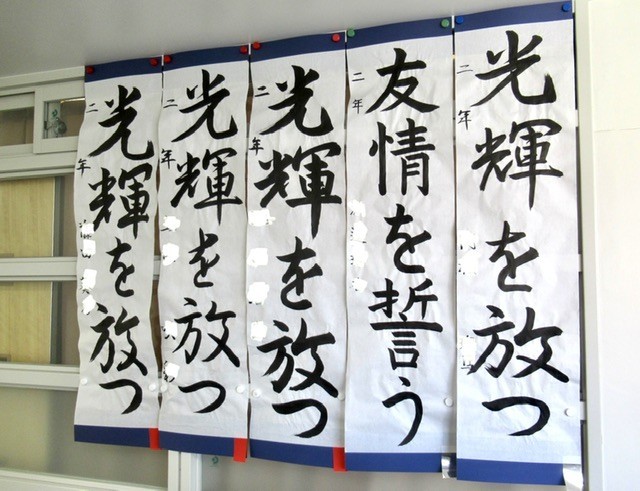 光輝を放つ
二年
友情を誓う
二年
光輝を放つ
二年
光輝を放つ
二年
光輝を放つ
二年